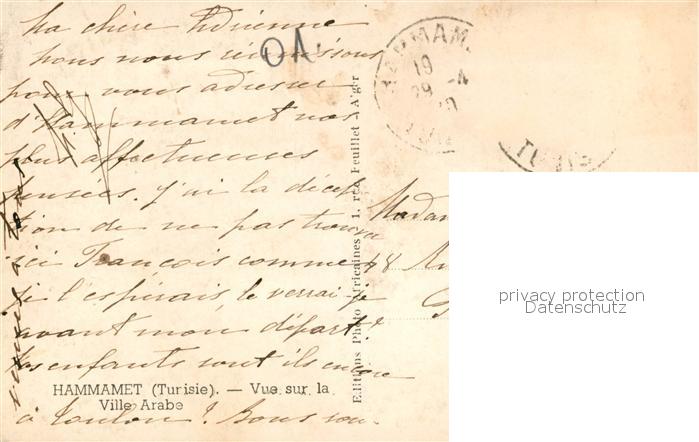 Ma chère Adrienne
nous nous réunissons
pour vous adresser
d'Hammamet nos
plus affectueuses
pensées. j'ai la décep
tion de ne pas trouver
ici François comme
je l'espérais, le verrai-je
avant mon départ?
Vos enfants sont ils encore
à Toulon? Bons sou-
OA.
HAMMAMET (Tunisie). — Vue sur la
Ville Arabe
Editions Photo Africaines 1, rue Feuillet - Alger
HAMMAM
19
29 -4
TUNIS
Madam
48
privacy protection
Datenschutz